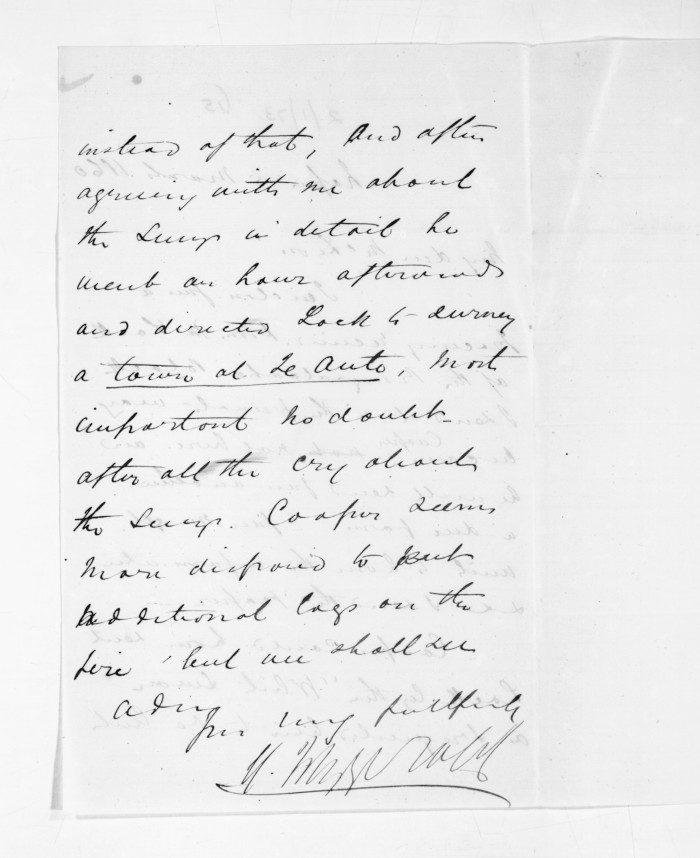 instead of that, and after
agreeing with me about
the Lungs in detail he
went an hour afterwards
and directed Lock to survey
a town at Te Aute, most
important no doubt
after all the cry about
the Lungs. Cooper seems
more disposed to put
additional logs on the
fire but we shall see
adieu
Yrs very faithfully